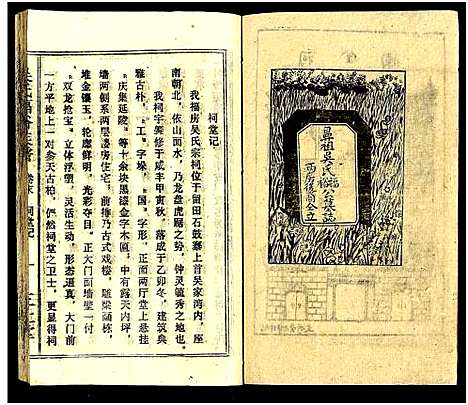 鼻祖吴氏福裕公墓誌
西房後裔仝立
祠堂记
我福房吴氏宗祠位于留田石鼓寨上首吴家湾内，座
南朝北，依山面水，乃龙盘虎踞之势，钟灵毓秀之地也。
我祠宇筹修于咸丰甲寅秋，落成于乙卯冬，建筑典
雅古朴，“工”字垛，“国”字形，正面两厅堂上悬挂
庆集延陵。等十余块黑漆金字木匾，中有露天内坪，
墙两侧系两层楼房住宅，前排乃古式戏楼，雕梁画栋，
堆金镶玉，轮廓鲜明，光彩夺目。正大门面墙壁一付
双龙抢宝，立体浮塑，灵活生动，形态逼真，大门前
一方平地上一对参天古柏，俨然祠堂之卫士，更显得祠
卷末
祠堂记
一